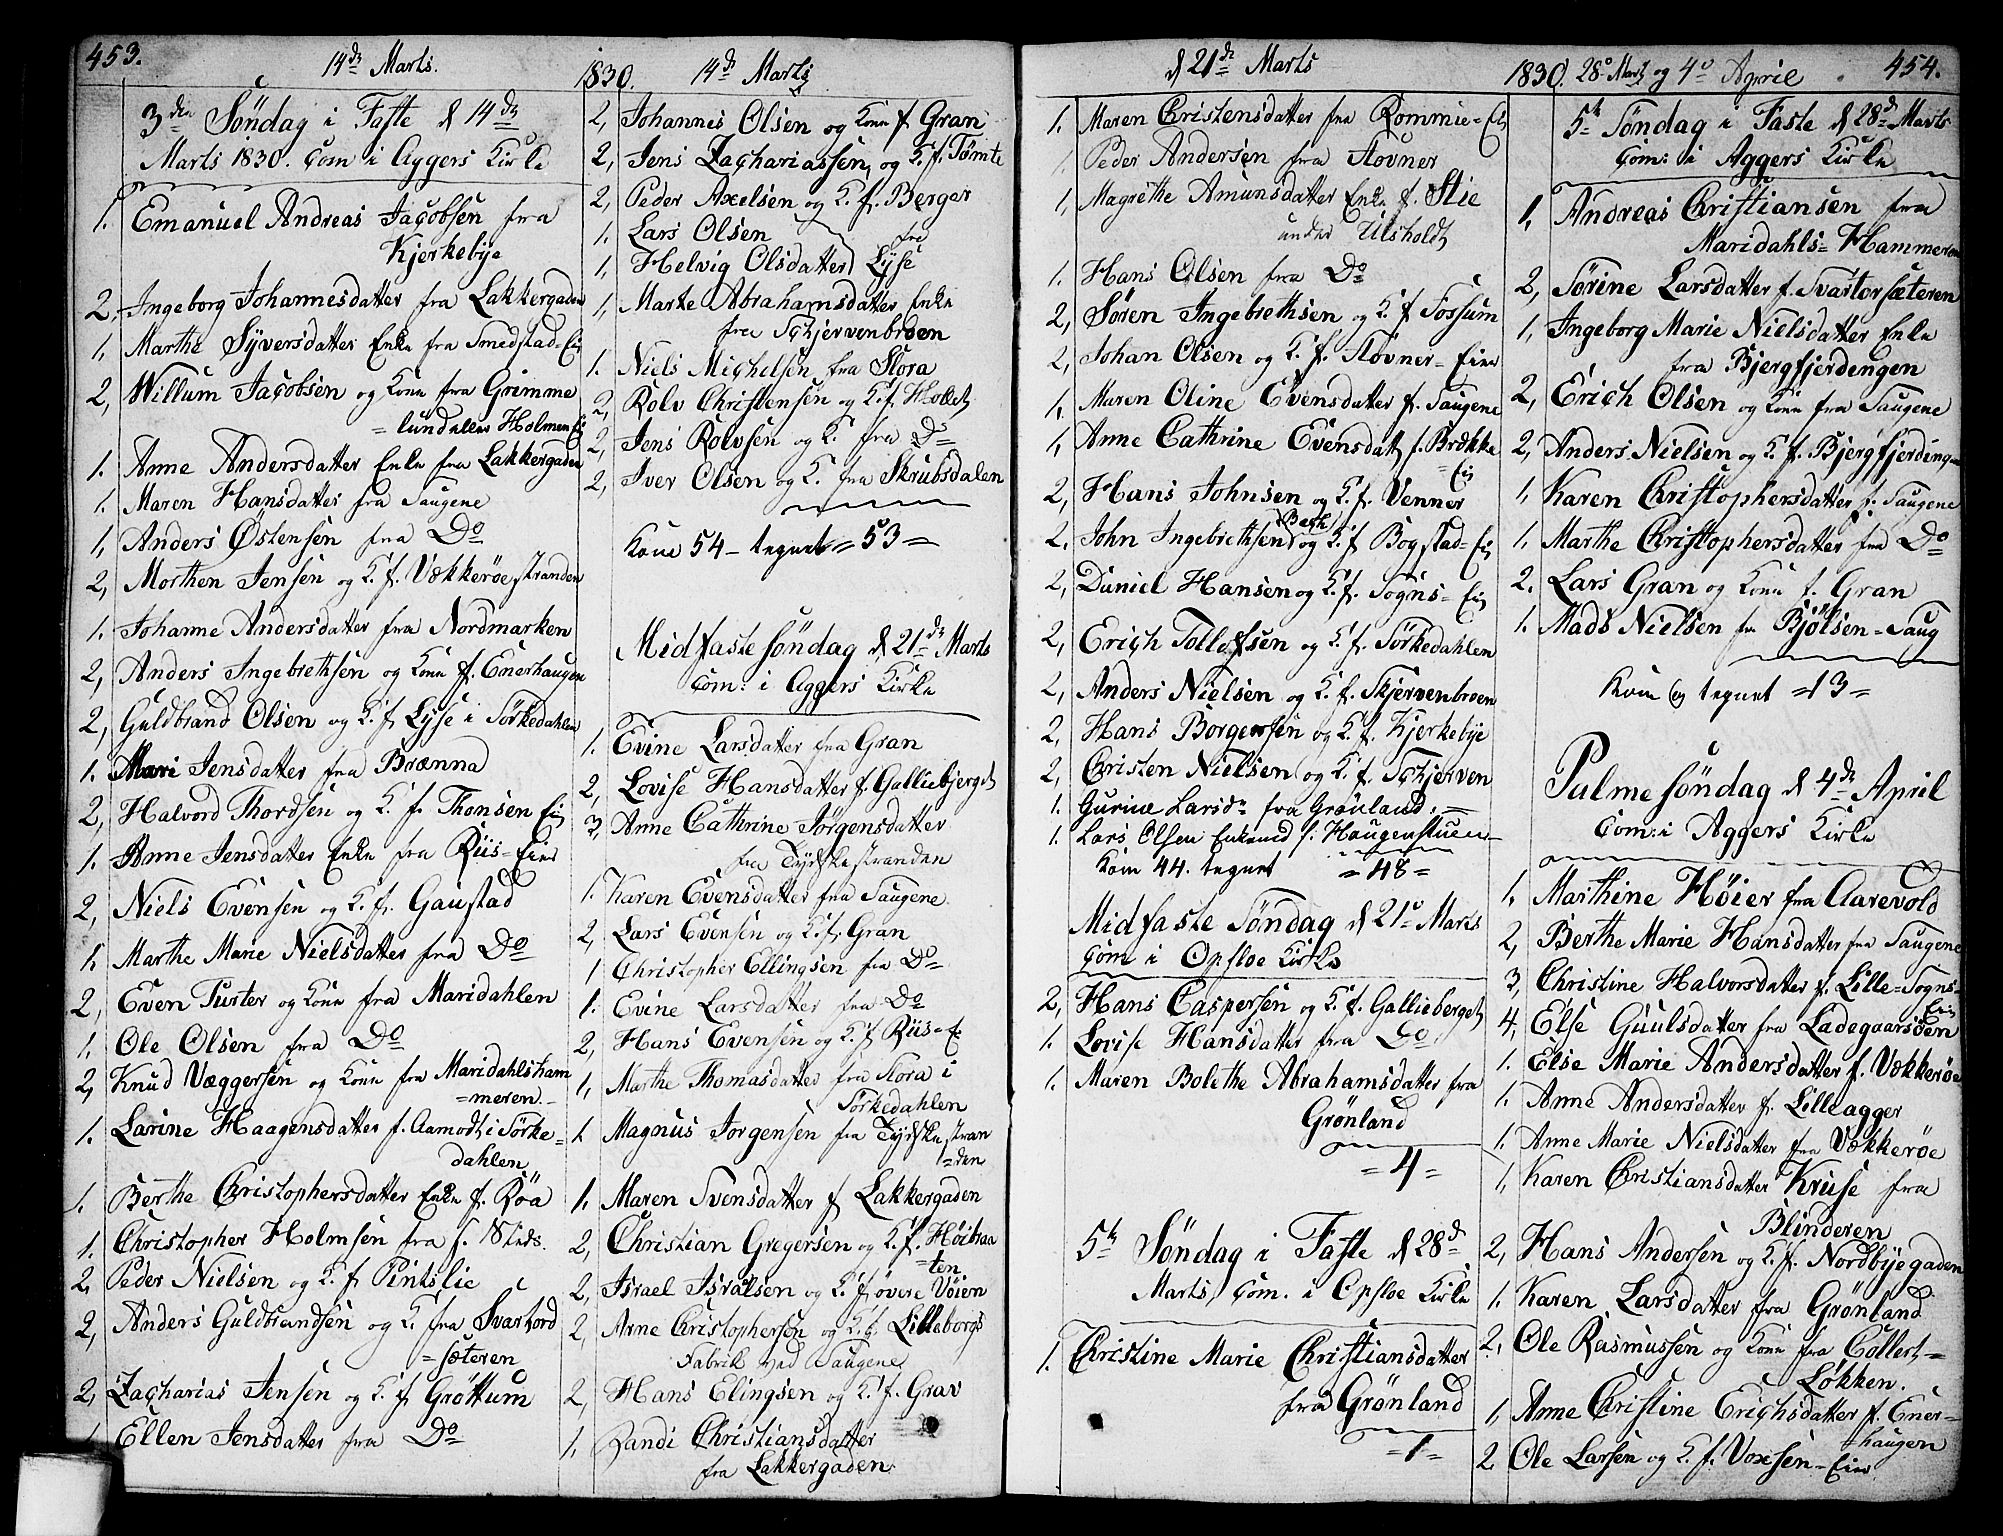 453.
14de Marts.
3den Søndag i Faste d 14de
Marts 1830. Com i Aggers Kirke
1. Emanuel Andreas Jacobsen fra
Kjerkebye
2, Ingeborg Johannesdatter fra Lakkergaden
1, Marthe Syversdatter Enke fra Smedstad-Eie
2, Willum Jacobsen og Kone fra Grimme
=lund eller Holmen Ei
1. Anne Andersdatter Enke fra Lakkergaden
1. Maren Hansdatter fra Saugene
1, Anders Østensen fra Do
2, Morthen Jensen og K. f. Vækkerøestranden
1. Johanne Andersdatter fra Nordmarken
2, Anders Ingebrethsen og Kone f. Enerhaugen
2, Guldbrand Olsen og K. f. Lyse i Sørkedahlen
1. Mari Jensdatter fra Brænna
2, Halvord Thordsen og K. f. Thonsen Eie
1. Anne Jensdatter Enke fra Riis-Eier
2, Niels Evensen og K. f. Gaustad
1, Marthe Marie Nielsdatter fra Do
2, Even Turter og Kone fra Maridahlen
1. Ole Olsen fra Do
2, Knud Væggersen og Kone fra Maridahlsham
=meren.
1. Larine Haagensdatter f. Aamodt i Sørke=
dahlen
1. Berthe Christophersdatter Enke f. Røa
1. Christopher Holmsen fra f. Steds.
2, Peder Nielsen og K. f. Pintslie
2, Anders Guldbrandsen og K. fra Svartord
=sæteren
2, Zacharias Jensen og K. f. Grøttum
1, Ellen Jensdatter fra Do
1830. 14de Marts
2, Johannes Olsen og Kone f. Gran
2, Jens Zachariassen og K. f. Tømte
2, Peder Axelsen og K. f. Berger
1. Lars Olsen
fra
1, Helvig Olsdatter Lyse
1, Marte Abrahamsdatter Enke
fra Schjervenbroen
1. Niels Michelsen fra Slora
2, Rolv Christensen og K. f. Hollet
2, Jens Rolvsen og K. fra Do
2, Iver Olsen og K. fra Skrubsdalen
Kom 54 - tegnet = 53 =
Midfastesøndag d 21de Marts
Com: i Aggers Kirke
1. Evine Larsdatter fra Gran
2, Lovise Hansdatter f. Galliebjerget
3, Anne Cathrine Jørgensdatter
fra Tydskestranden
1. Karen Evensdatter fra Saugene
2, Lars Evensen og K. f. Gran
1 Christopher Ellingsen fra Do
1. Evine Larsdatter fra Do
2, Hans Evensen og K. f. Riis-E
1, Marthe Thomasdatter fra Slora i
Sørkedahlen
1. Magnus Jorgensen fra Tydskestran
=den
1. Maren Svensdatter f. Lakkergaden
2, Christian Gregersen og K. f. Høibraa
=ten
2, Israel Israelsen og K. f. øvre Vøien
2, Arne Christophersen og K. f. Lilleborgs
Fabrik ved Saugene
2, Hans Elingsen og K. f. Grav
1, Randi Christiansdatter
fra Lakkergaden.
d 21de Marts
1. Maren Christensdatter fra Rommie-Eie
1. Peder Andersen fra Stovner
1, Magrethe Amunsdatter Enke f. Slie
under Ulsholdt
1. Hans Olsen fra Do
2, Søren Ingebrethsen og K. f. Fossum
2, Johan Olsen og K. f. Stovner-Eier
1, Maren Oline Evensdatter f. Saugene
1, Anne Cathrine Evensdat f. Brække
=Eie
2, Hans Johnsen og K. f. Venner
Bech
2. John Ingebrethsen og K. f. Bogstad-Eie
2, Daniel Hansen og K. f. Sogns-Eie
2, Erich Tollefsen og K. f. Sørkedahlen
2, Anders Nielsen og K. f. Skjervenbroen
2, Hans Borgersen og K. f. Kjerkebye
2, Christen Nielsen og K. f. Schjerven
1. Gurine Larsdr fra Grønland.
1. Lars Olsen Enkemd f. Haugenstuen
Kom 44. tegnet = 48 =
Midfaste Søndag d 21o Marts
Com i Opsloe Kirke
2, Hans Caspersen og K. f. Gallieberget
1. Lovise Hansdatter fra Do
1. Maren Bolethe Abrahamsdatter fra
Grønland
= 4 =
5te Søndag i Faste d 28de
Marts, Com. i Opsloe Kirke
1. Christine Marie Christiansdatter
fra Grønland
= 1 =
1830. 28o Marts og 4o Aprie 454.
5te Søndag i Faste d 28de Marts
Com: i Aggers Kirke
1, Andreas Christiansen fra
Maridahls-Hammeren
2, Sørine Larsdatter f. Svartorsæteren
1, Ingeborg Marie Nielsdatter Enke
fra Bjergfjerdengen
2, Erich Olsen og Kone fra Saugene
2, Anders Nielsen og K. f. Bjergfjerdingen
1, Karen Christophersdatter f. Saugene
1. Marthe Christophersdatter fra Do
2. Lars Gran og Kone f. Gran
1. Mads Nielsen fr Bjølsen-Saug
Kom og tegnet = 13 =
Palmesøndag d 4de April
Com: i Aggers Kirke
1, Marthine Høier fra Aarevold
2, Berthe Marie Hansdatter fra Saugene
3, Christine Halvorsdatter f. Lille-Sogns-
Eie
4, Else Guulsdatter fra Ladegaarsøen
1. Else Marie Andersdatter f. Vækkerøe
1. Anne Andersdatter f. Lilleagger
1. Anne Marie Nielsdatter fra Vækkerøe
1, Karen Christiansdatter Kruse fra
Blinderen
2, Hans Andersen og K. f. Nordbyegaden
1. Karen Larsdatter fra Grønland
2, Ole Rasmussen og Kone fra Collert=
Løkken.
1, Anne Christine Erichsdatter f. Ener=
haugen
2. Ole Larsen og K. f. Voxsen-Eier